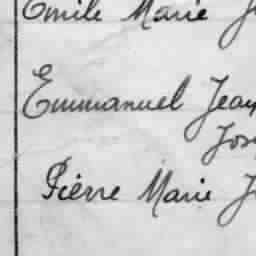 Emile Marie
Emmanuel Jean
Jos
Pièrre Marie J